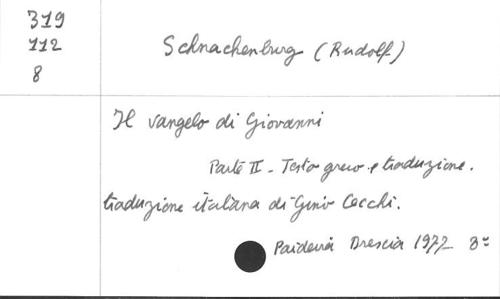 319
112
8
Schnachenburg (Rudolf)
Il vangelo di Giovanni
Parte II - Testo greco e traduzione.
traduzione italiana di Gino Cecchi.
Paideia Brescia 1977 8°